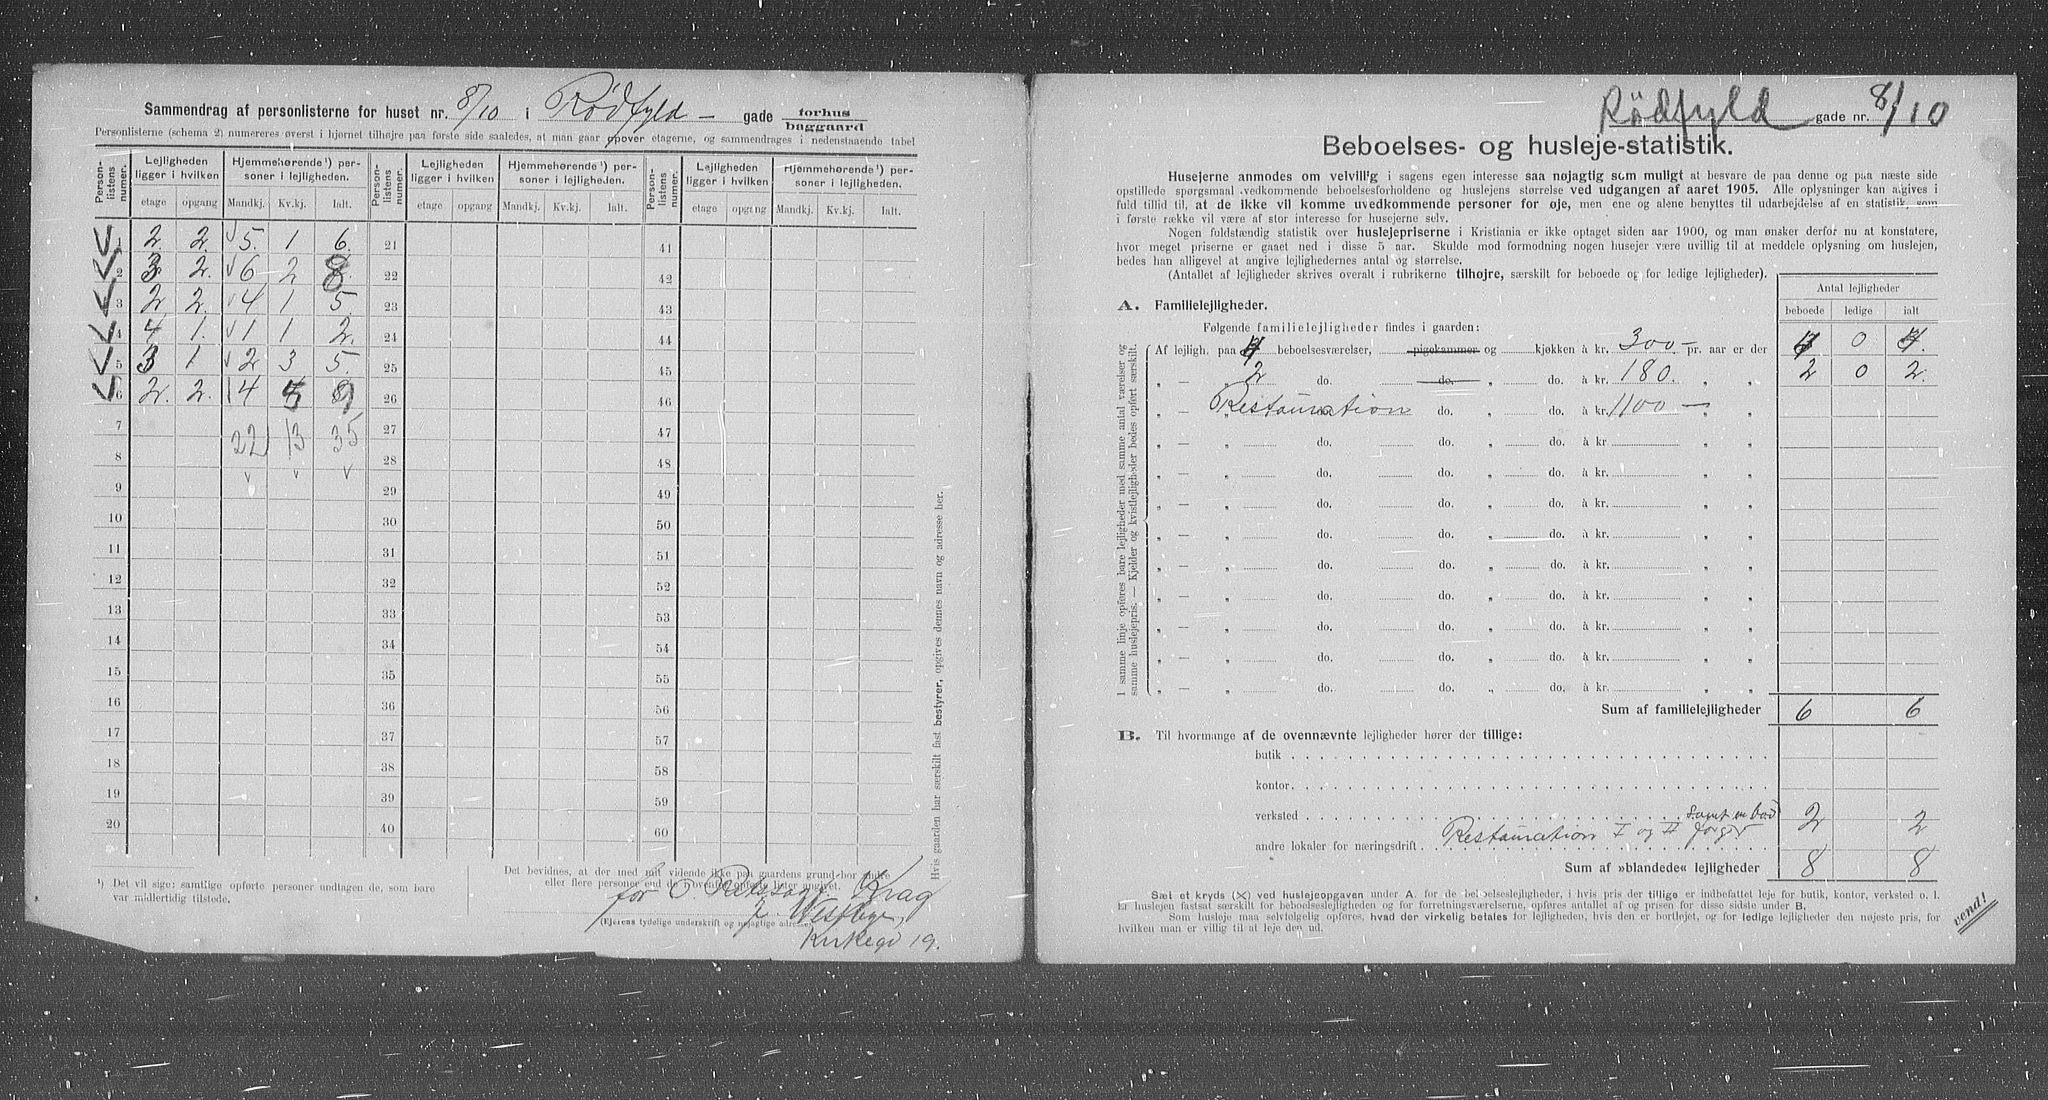 Sammendrag af personlisterne for huset nr. 8/10 i Rødfyld - gade forhus
baggaard
Personlisterne (schema 2) numereres øverst i hjørnet tilhøjre paa første side saaledes, at man gaar opover etagerne, og sammendrages i nedenstaaende tabel
Person-listens numer. Lejligheden ligger i hvilken Hjemmehørende¹) personer i lejligheden. Person-listens numer. Lejligheden ligger i hvilken Hjemmehørende¹) personer i lejligheden. Person-listens numer. Lejligheden ligger i hvilken Hjemmehørende¹) personer i lejligheden.
etage opgang Mandkj. Kv.kj. Ialt. etage opgang Mandkj. Kv.kj. Ialt. etage opgang Mandkj. Kv.kj. Ialt.
1 2. 2. 5. 1 6. 21 41
2 3 2. 6 2 8. 22 42
3 2 2. 4 1 5. 23 43
4 4 1. 1 1 2. 24 44
5 3 1 2 3 5. 25 45
6 2. 2. 4 5 9 26 46
7 22 13 35 27 47
8 28 48
9 29 49
10 30 50
11 31 51
12 32 52
13 33 53
14 34 54
15 35 55
16 36 56
17 37 57
18 38 58
19 39 59
20 40 60
¹) Det vil sige: samtlige opførte personer undtagen de, som bare
var midlertidig tilstede.
Det bevidnes, at der med mit vidende ikke paa gaardens grund bor andre
eller flere personer end de i ovennævnte lister opgivet.
for O. Krag
(Ejerens tydelige underskrift og nøjagtige adresse)
Kirkegd 19.
Hvis gaarden har særskilt fast bestyrer, opgives dennes navn og adresse her.
Rødfyld gade nr. 8/10
Beboelses- og husleje-statistik.
Husejerne anmodes om velvillig i sagens egen interesse saa nøjagtig som muligt at besvare de paa denne og paa næste side
opstillede spørgsmaal vedkommende beboelsesforholdene og huslejens størrelse ved udgangen af aaret 1905. Alle oplysninger kan afgives i
fuld tillid til, at de ikke vil komme uvedkommende personer for øje, men ene og alene benyttes til udarbejdelse af en statistik, som
i første række vil være af stor interesse for husejerne selv.
Nogen fuldstændig statistik over huslejepriserne i Kristiania er ikke optaget siden aar 1900, og man ønsker derfor nu at konstatere,
hvor meget priserne er gaaet ned i disse 5 aar. Skulde mod formodning nogen husejer være uvillig til at meddele oplysning om huslejen,
bedes han alligevel at angive lejlighedernes antal og størrelse.
(Antallet af lejligheder skrives overalt i rubrikerne tilhøjre, særskilt for beboede og for ledige lejligheder).
Antal lejligheder
beboede ledige ialt
A. Familielejligheder.
Følgende familielejligheder findes i gaarden:
1 samme linje opføres bare lejligheder med samme antal værelser og
samme huslejepris. — Kjelder og kvistlejligheder bedes opført særskilt.
Af lejligh. paa beboelsesværelser, pigekammer og kjøkken à kr. 300 - pr. aar er der 4 0 4.
„ — „ 2 do. do. „ do. à kr. 180. „ „ 2 0 2.
„ — „ Restauration do. „ do. à kr. 1100 - „ „
„ — „ do. do. „ do. à kr. „ „
„ — „ do. do. „ do. à kr. „ „
„ — „ do. do. „ do. à kr. „ „
„ — „ do. do. „ do. à kr. „ „
„ — „ do. do. „ do. à kr. „ „
„ — „ do. do. „ do. à kr. „ „
„ — „ do. do. „ do. à kr. „ „
„ — „ do. do. „ do. à kr. „ „
„ — „ do. do. „ do. à kr. „ „
Sum af familielejligheder 6 6
B. Til hvormange af de ovennævnte lejligheder hører der tillige:
butik
kontor
verksted samt en 2 2
andre lokaler for næringsdrift Restauration I og II
Sum af »blandede« lejligheder 8 8
Sæt et kryds (X) ved huslejeopgaven under A. for de beboelseslejligheder, i hvis pris der tillige er indbefattet leje for butik, kontor, verksted o. l.
Er huslejen fastsat særskilt for beboelseslejligheden og for forretningsværelserne, opføres antallet af og prisen for disse sidste under B.
Som husleje maa selvfølgelig opføres, hvad der virkelig betales for lejligheden, hvis den er bortlejet, og for ledige lejligheder den nøjeste pris, for
hvilken man er villig til at leje den ud.
vend!